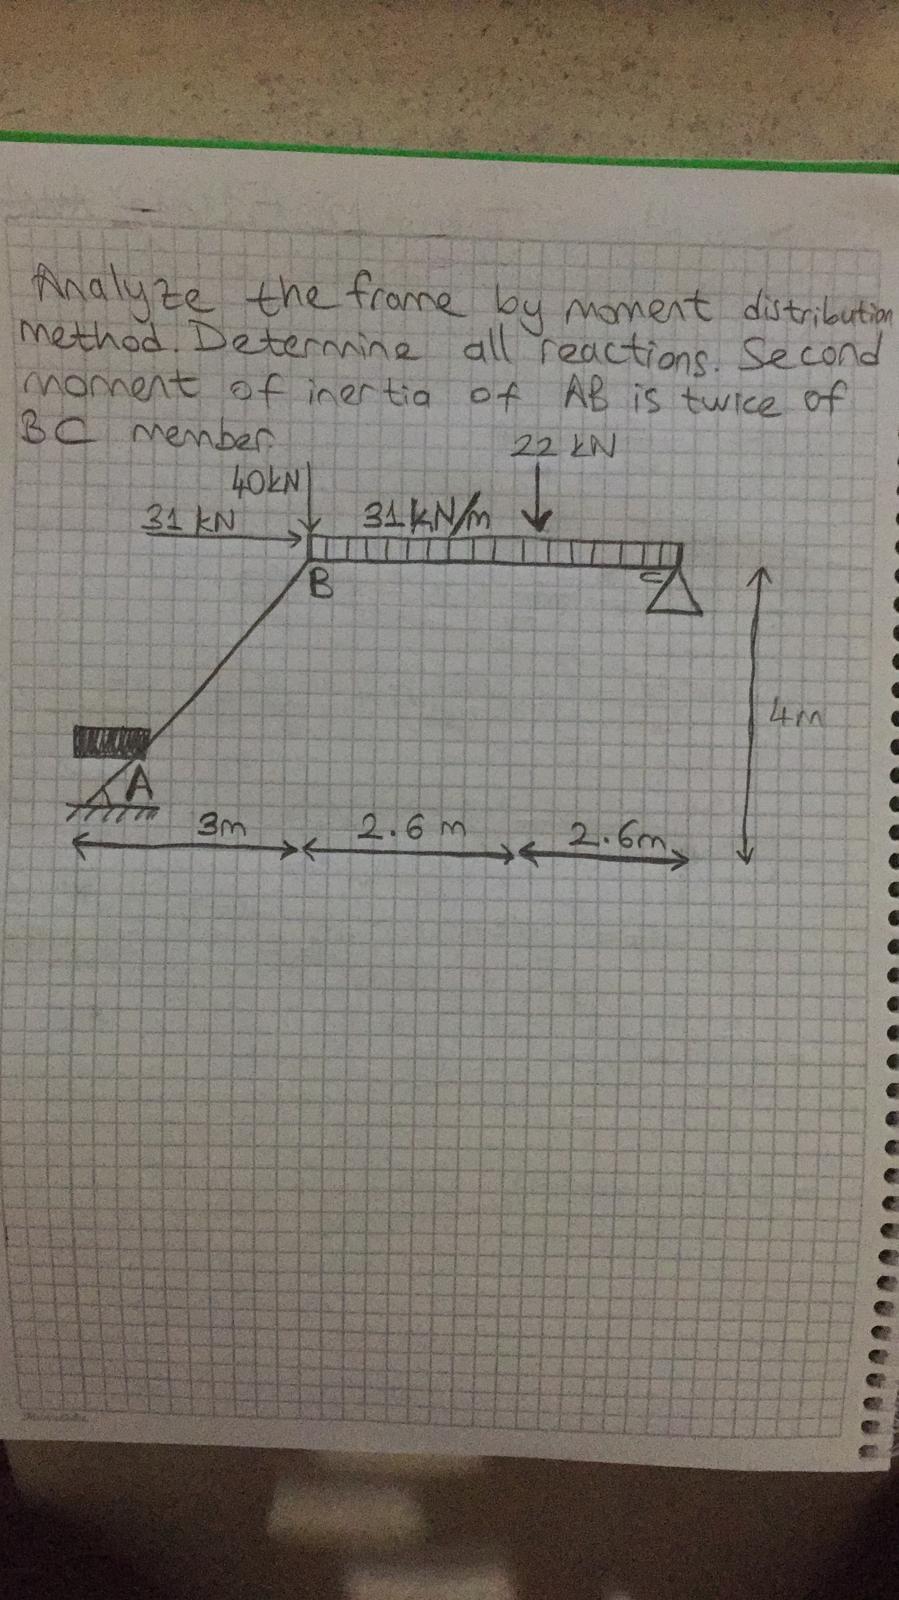 Analyze the frame by moment distribution
method. Determine all reactions. Second
moment of inertia of AB is twice of
BC member.
22 kN
40kN
31 kN
31kN/m
B
C
4m
A
3m
2.6 m
2.6m